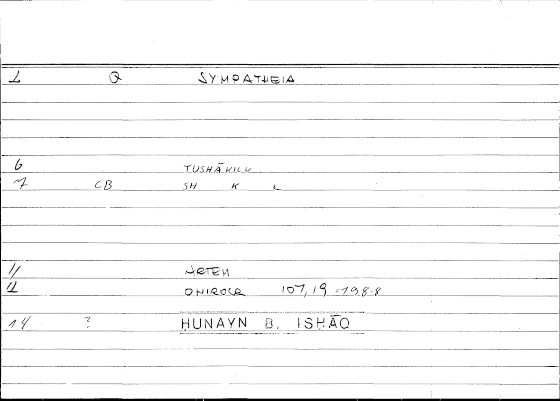 1 Q SYMPATHEIA
6 TUSHĀKILU
7 CB SH K L
11 ARTEM
12 ONIROCR 107,19 =198-8
14 ? HUNAYN B. ISHĀQ